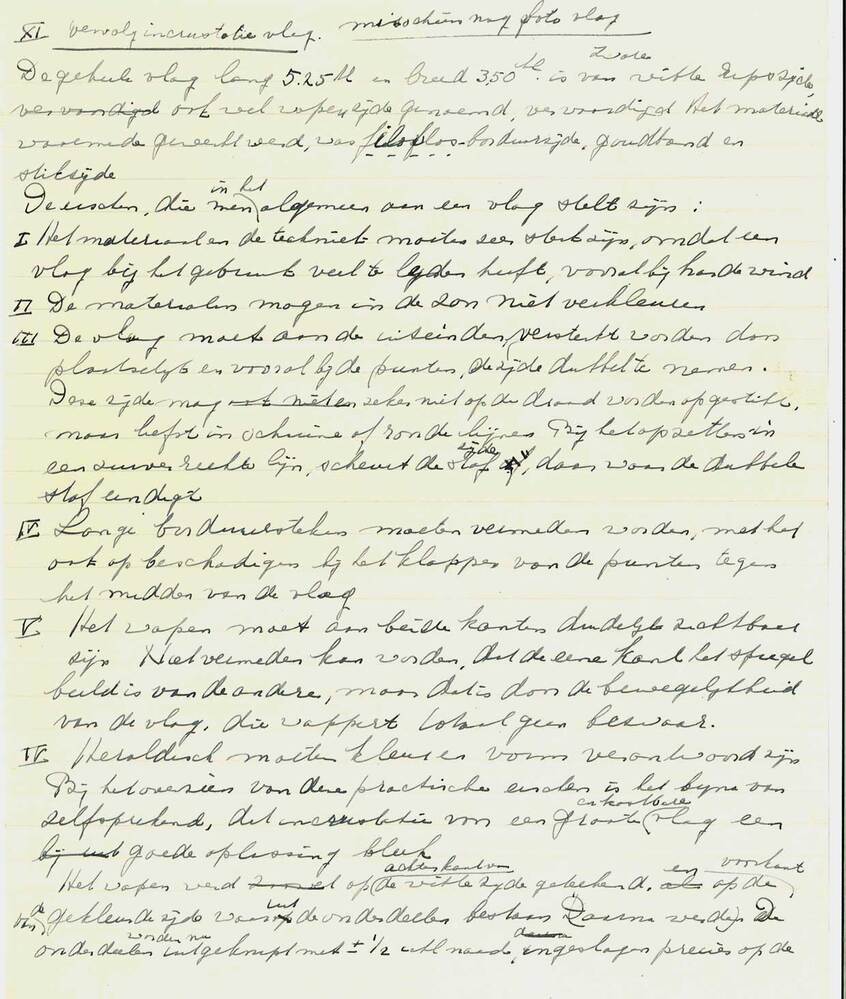 XI vervolg incrustatie vlag. misschien nog foto vlag
De gehele vlag lang 5.25 M en breed 3,50 M. is van witte zware zijde,
vervaardigd ook wel wapenzijde genoemd, vervaardigd Het materiaal
waarmede gewerkt werd, was filoflos-borduurzijde, goudband en
stikzijde
De eischen, die men in het algemeen aan een vlag stelt zijn:
I Het materiaal en de techniek moeten zeer sterk zijn, omdat een
vlag bij het gebruik veel te lyden heeft, vooral bij harde wind
II De materialen mogen in de zon niet verkleuren
III De vlag moet aan de uiteinden versterkt worden door
plaatselyk en vooral bij de punten, de zijde dubbel te nemen.
Deze zijde mag zeker niet op de draad worden opgestikt,
maar liefst in schuine of ronde lijnen Bij het opzetten in
een zuiver rechte lijn, scheurt de zijde stof af, daar waar de dubbele
stof eindigt
IV Lange borduursteken moeten vermeden worden, met het
oog op beschadigen bij het klappen van de punten tegen
het midden van de vlag
V Het wapen moet aan beide kanten duidelyk zichtbaar
zijn Niet vermeden kan worden, dat de eene kant het spiegel
beeld is van de andere, maar dat is door de bewegelykheid
van de vlag, die wappert totaal geen bezwaar.
IV Heraldisch moeten kleur en vorm verantwoord zijn
Bij het overzien van deze practische eischen is het byna van
zelfsprekend, dat incrustatie van een groote en kostbare vlag een
bij uit goede oplossing bleek
Het wapen werd op de achterkant van de witte zijde getekend, als en op de voorkant
van de gekleurde zijde waaruit de onderdeelen bestaan Daarna werden De
onderdeelen worden nu uitgeknipt met ± 1/2 naad, daarna ingeslagen precies op de